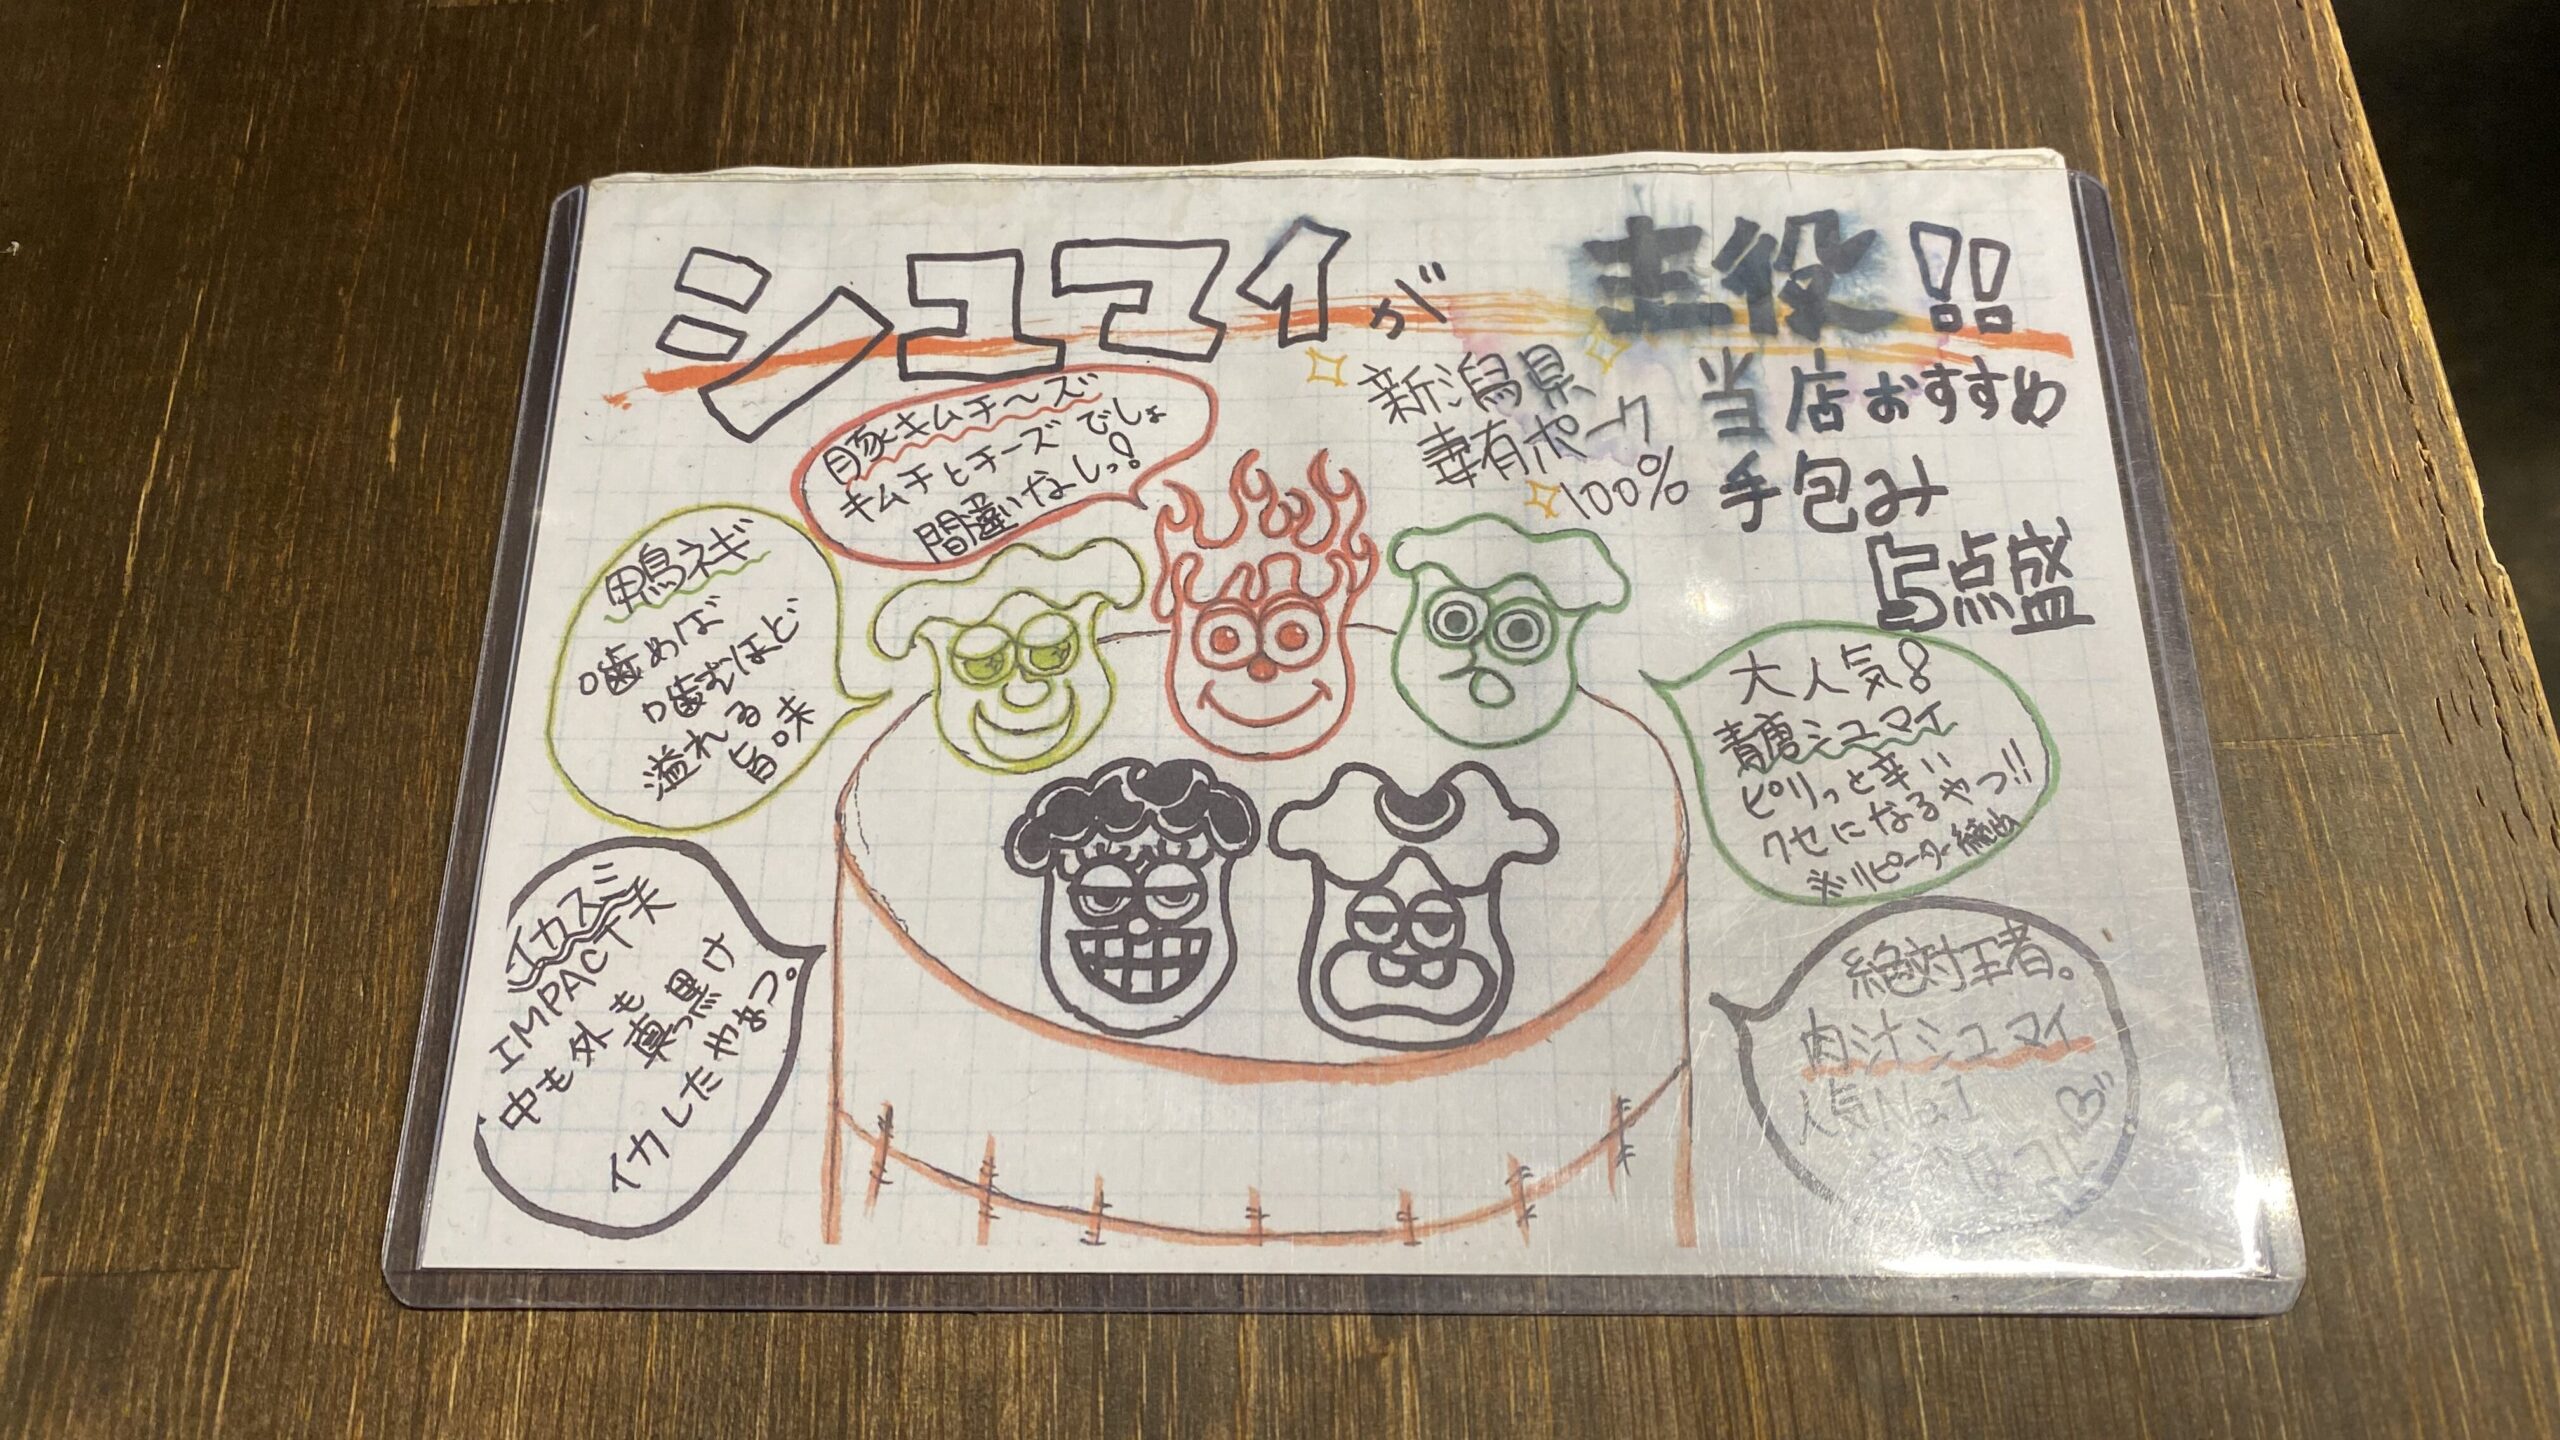 シュマイが主役!!
新潟県
妻有ポーク
100%
当店おすすめ
手包み
5点盛
豚キムチ〜ズ
キムチとチーズでしょ
間違いなしっ!
鴨ネギ
噛めば
噛むほど
溢れる
旨味
大人気!
青唐シュマイ
ピリっと辛い
クセになるやつ!!
※リピーター続出
イカスミ
IMPACT大
中も外も
真っ黒け
イカしたやぁつ。
絶対王者。
肉汁シュマイ
人気No.1